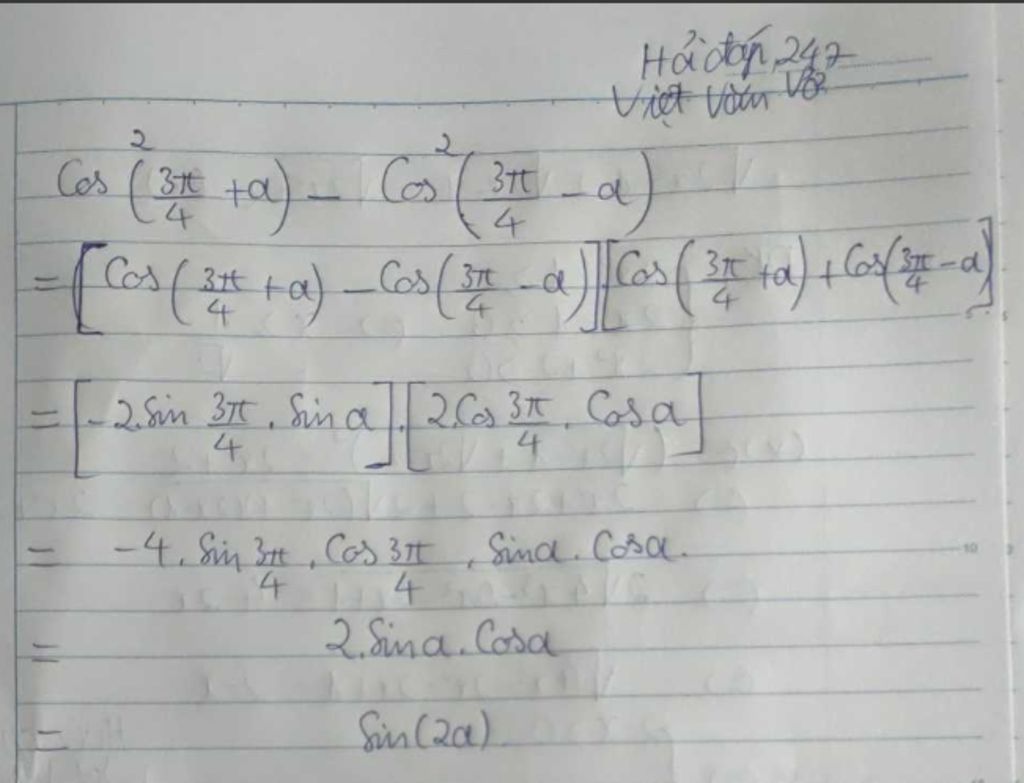 Hỏi đáp 247
Việt Văn Võ
Cos²(3π/4 + α) - Cos²(3π/4 - α)
= [Cos(3π/4 + α) - Cos(3π/4 - α)][Cos(3π/4 + α) + Cos(3π/4 - α)]
= [-2.Sin 3π/4 . Sin α].[2.Cos 3π/4 . Cos α]
= -4. Sin 3π/4 . Cos 3π/4 . Sinα. Cosα.
= 2.Sinα. Cosα
= Sin(2α)